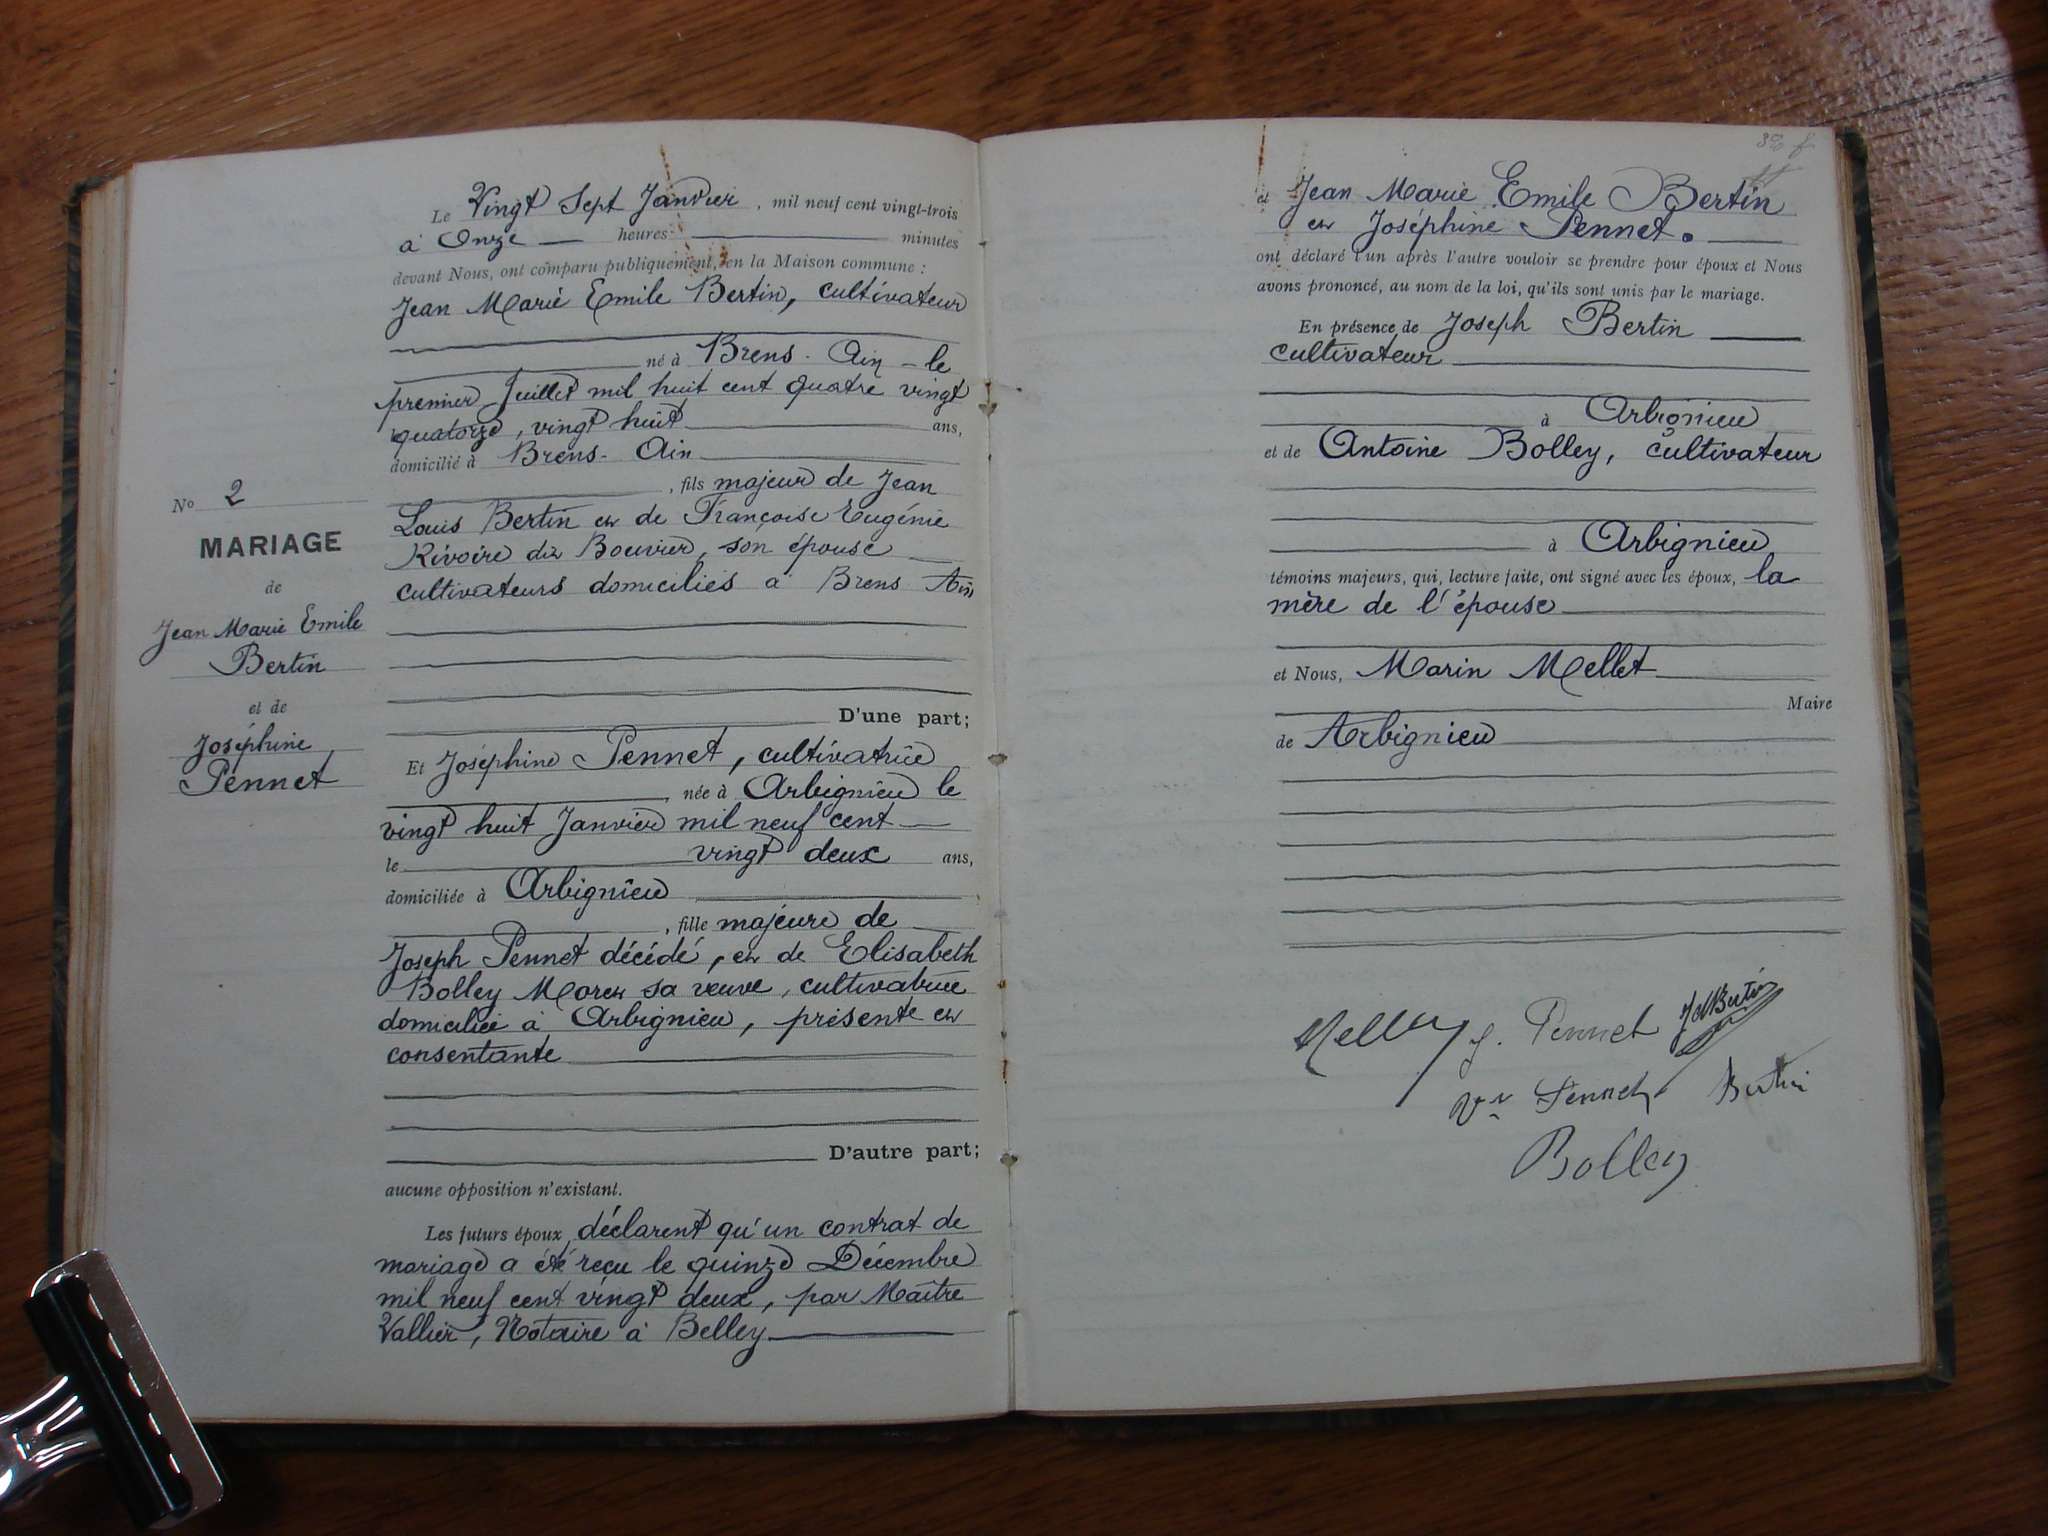 Le Vingt Sept Janvier, mil neuf cent vingt-trois
à Onze heures minutes
devant Nous, ont comparu publiquement, en la Maison commune :
Jean Marie Emile Bertin, cultivateur
né à Brens - Ain - le
premier Juillet mil huit cent quatre vingt
quatorze, vingt huit ans,
domicilié à Brens - Ain
, fils majeur de Jean
Louis Bertin et de Françoise Eugénie
Rivoire dit Bouvier, son épouse
cultivateurs domiciliés à Brens Ain
D'une part;
Et Joséphine Pennet, cultivatrice
, née à Arbignieu le
vingt huit Janvier mil neuf cent
le vingt deux ans,
domiciliée à Arbignieu
, fille majeure de
Joseph Pennet décédé, et de Elisabeth
Bolley Moret sa veuve, cultivatrice
domiciliée à Arbignieu, présente et
consentante
D'autre part;
aucune opposition n'existant.
Les futurs époux déclarent qu'un contrat de
mariage a été reçu le quinze Décembre
mil neuf cent vingt deux, par Maître
Vallier, Notaire à Belley
No 2
MARIAGE
de
Jean Marie Emile
Bertin
et de
Joséphine
Pennet
et Jean Marie Emile Bertin
et Joséphine Pennet.
ont déclaré l'un après l'autre vouloir se prendre pour époux et Nous
avons prononcé, au nom de la loi, qu'ils sont unis par le mariage.
En présence de Joseph Bertin
cultivateur
à Arbignieu
et de Antoine Bolley, cultivateur
à Arbignieu
témoins majeurs, qui, lecture faite, ont signé avec les époux, la
mère de l'épouse
et Nous, Marin Mellet
Maire
de Arbignieu
Mellet J. Pennet JMBertin
Vve Pennet Bertin
Bolley